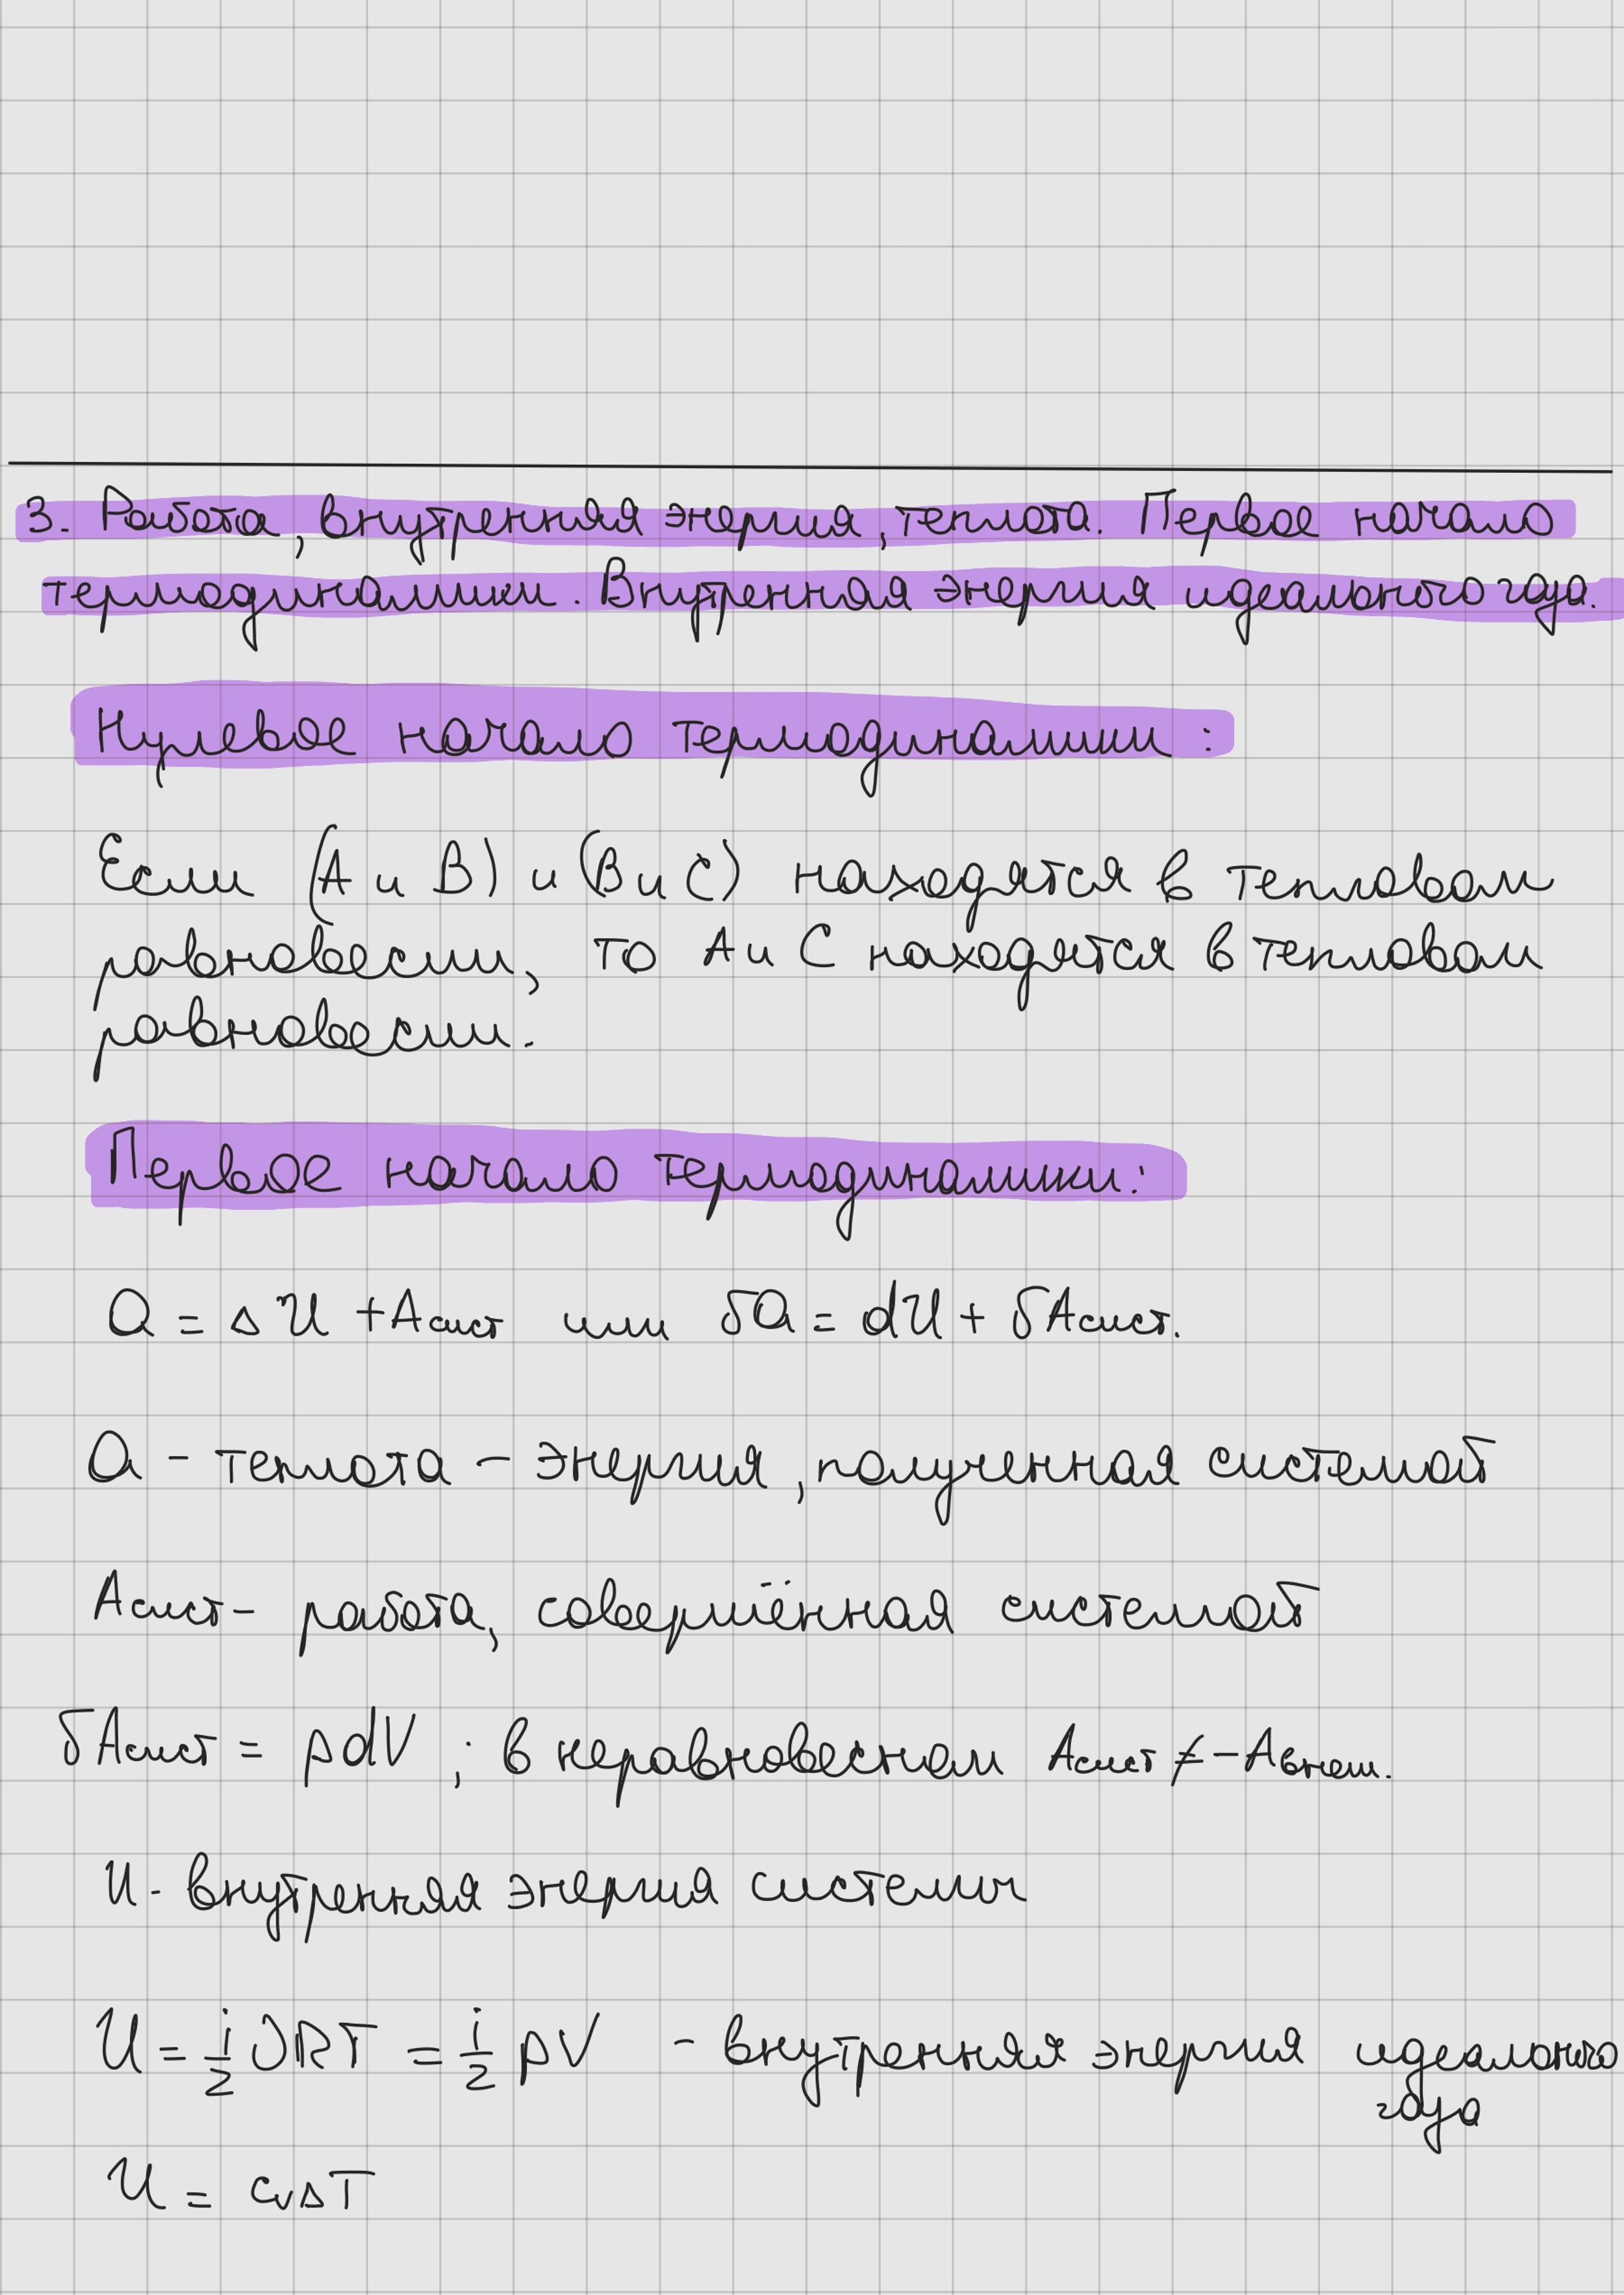 3. Работа, внутренняя энергия, теплота. Первое начало
термодинамики. Внутренная энергия идеального газа.
Нулевое начало термодинамики:
Если (А и В) и (В и С) находятся в тепловом
равновесии, то А и С находятся в тепловом
равновесии.
Первое начало термодинамики:
Q = ΔU + Aсист или δQ = dU + δAсист.
Q - теплота - энергия, полученная системой
Aсист - работа, совершённая системой
δAсист = pdV ; в неравновесном Aсист ≠ - Aвнеш.
U - внутренняя энергия системы
U = i/2 νRT = i/2 pV - внутренняя энергия идеального
газа
U = cᵥΔT